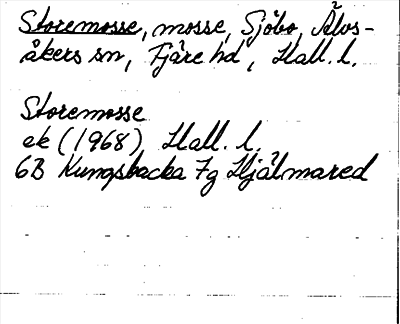 Storemosse, mosse, Sjöbo, Älvs-
åkers sn, Fjäre hd, Hall. l.
Storemosse
ek (1968), Hall. l.
6B Kungsbacka 7g Hjälmared